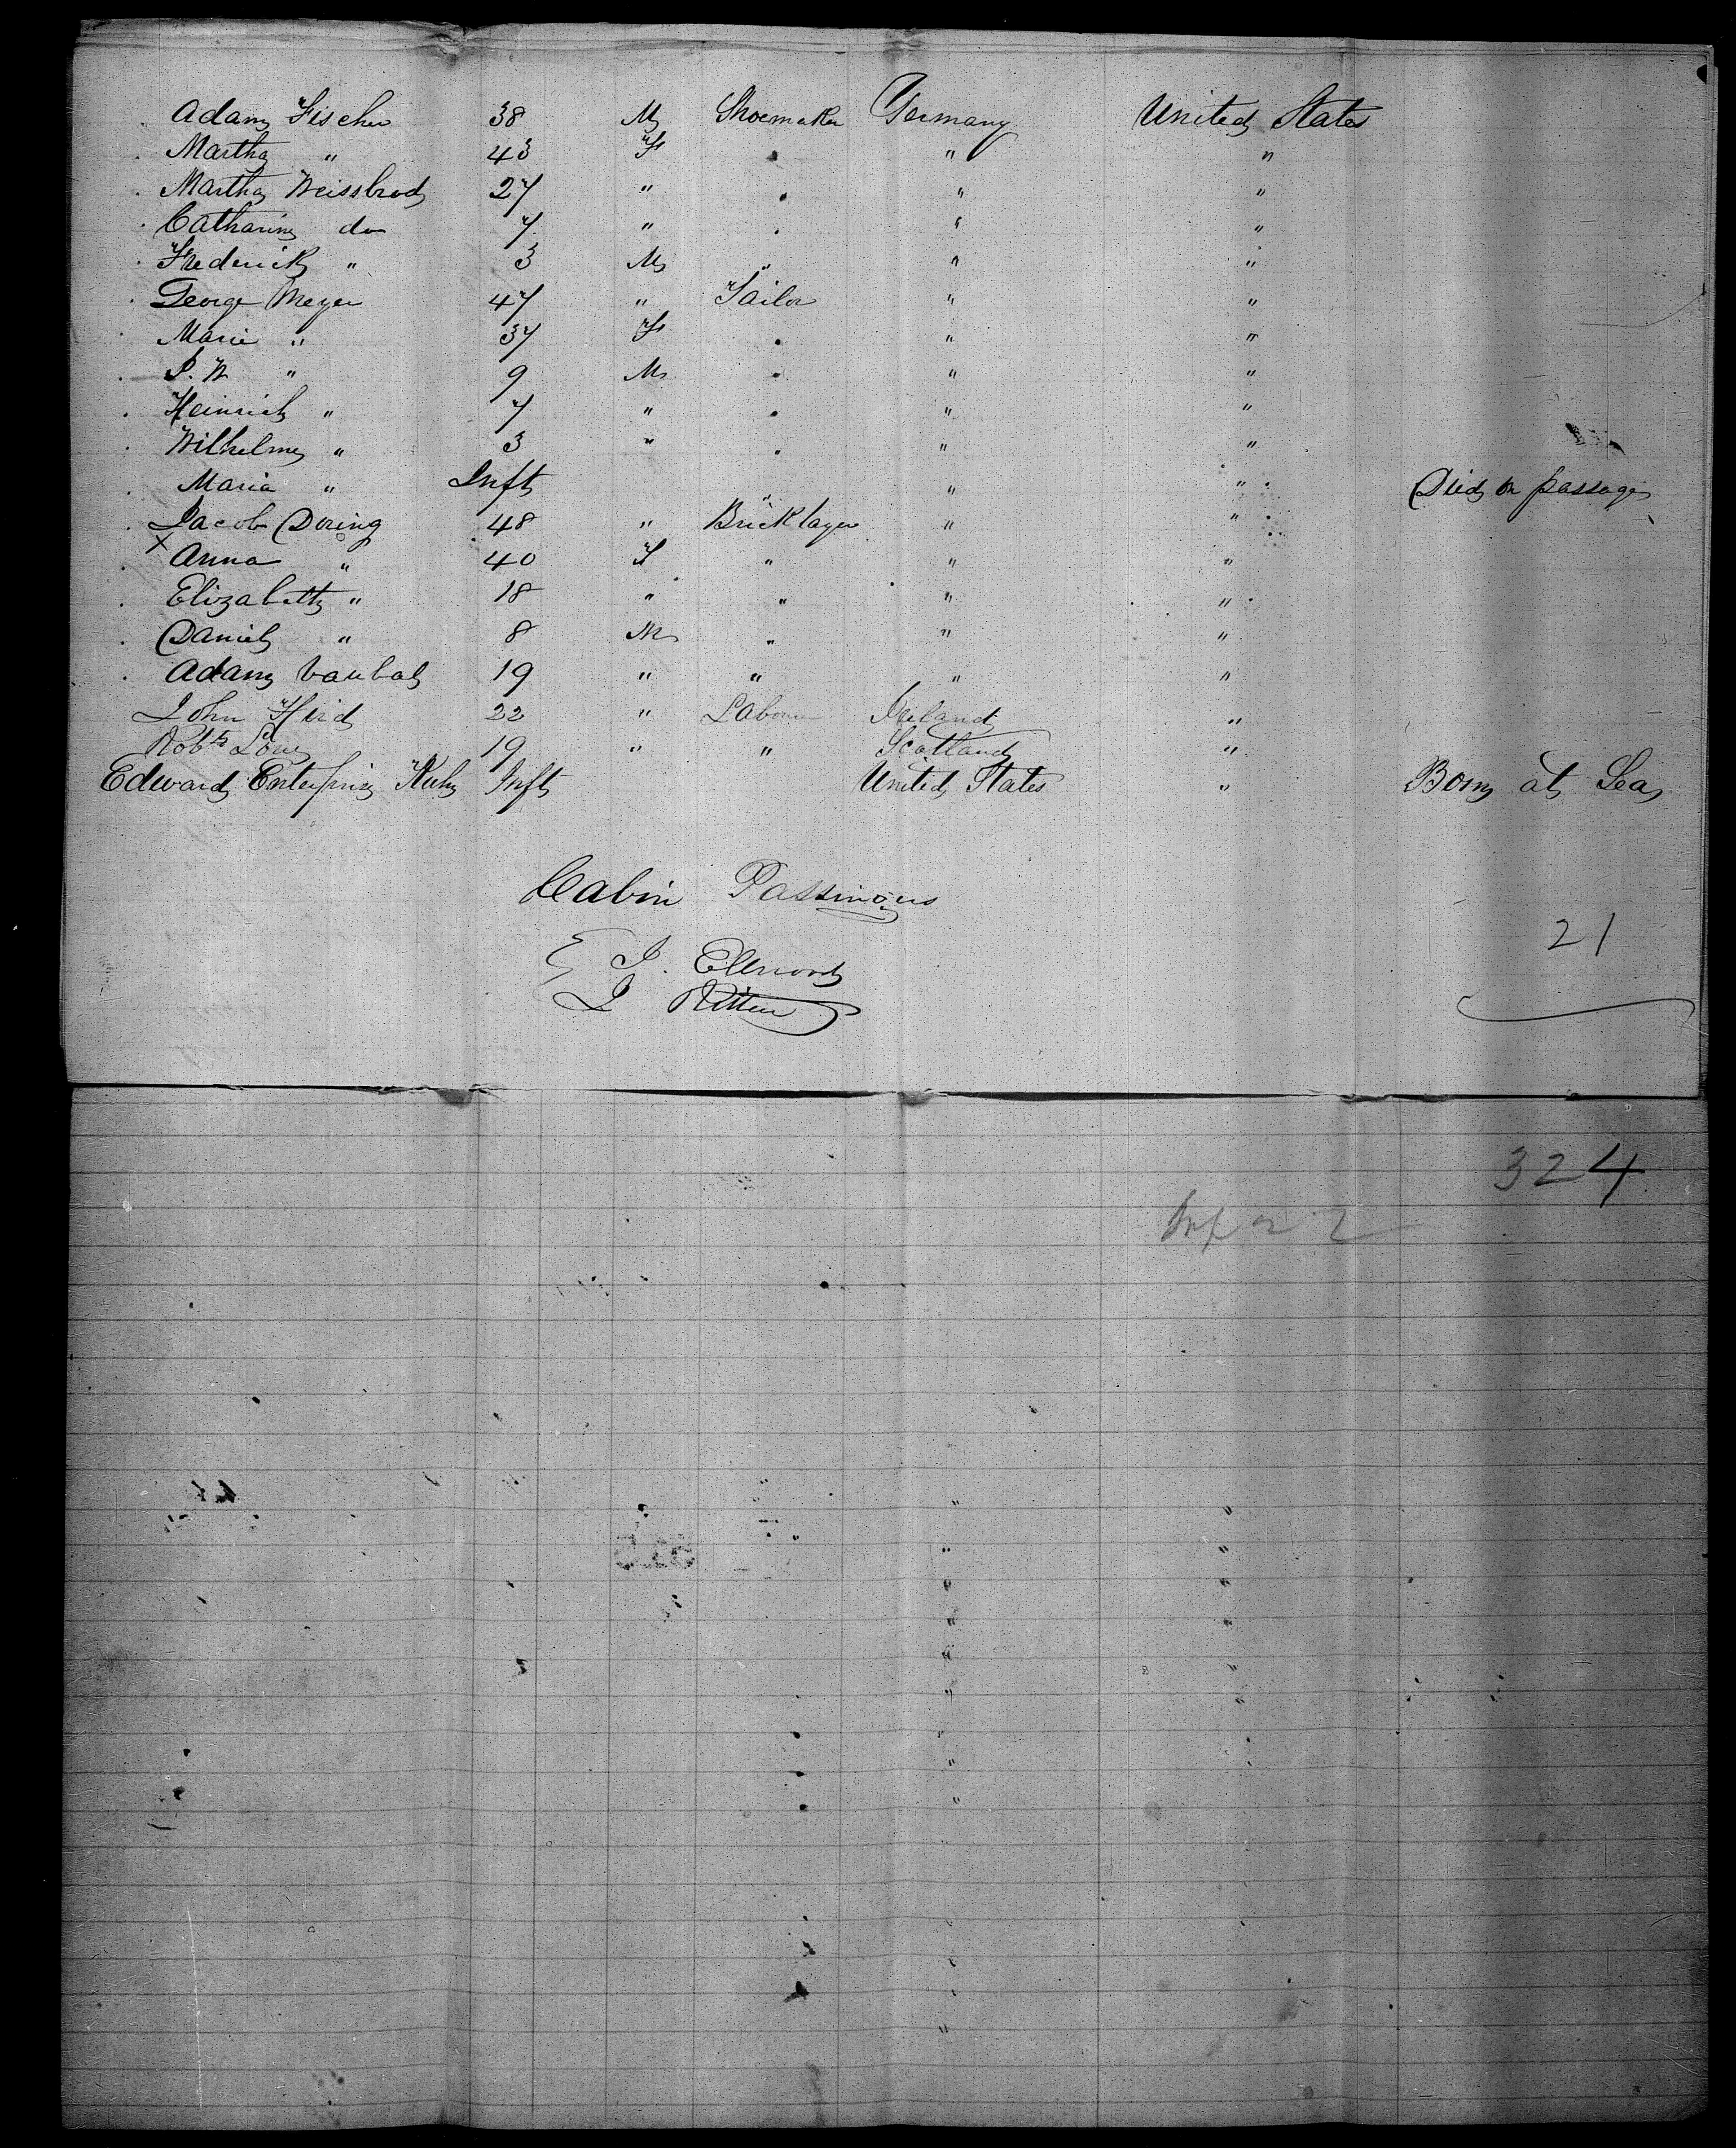 Adam Fischer 38 M Shoemaker Germany United States
Martha " 43 F " " "
Martha Weissbrod 27 " " " "
Catharine do 7 " " " "
Frederick " 3 M " " "
George Meyer 47 " Tailor " "
Marie " 37 F " " "
J. W " 9 M " " "
Heinrich " 7 " " " "
Wilhelm " 3 " " " "
Maria " Inft " " " Died on passage
Jacob Doring 48 " Bricklayer " "
x Anna " 40 F " " "
Elizabeth " 18 " " " "
Daniel " 8 M " " "
Adam 19 " " " "
John 22 " Labourer Ireland "
Robt Low 19 " " Scotland "
Edward Enterprise Kuhn Inft United States " Born at Sea
Cabin Passingers
J. Ellwood
J Ritter
21
324
Inf 22